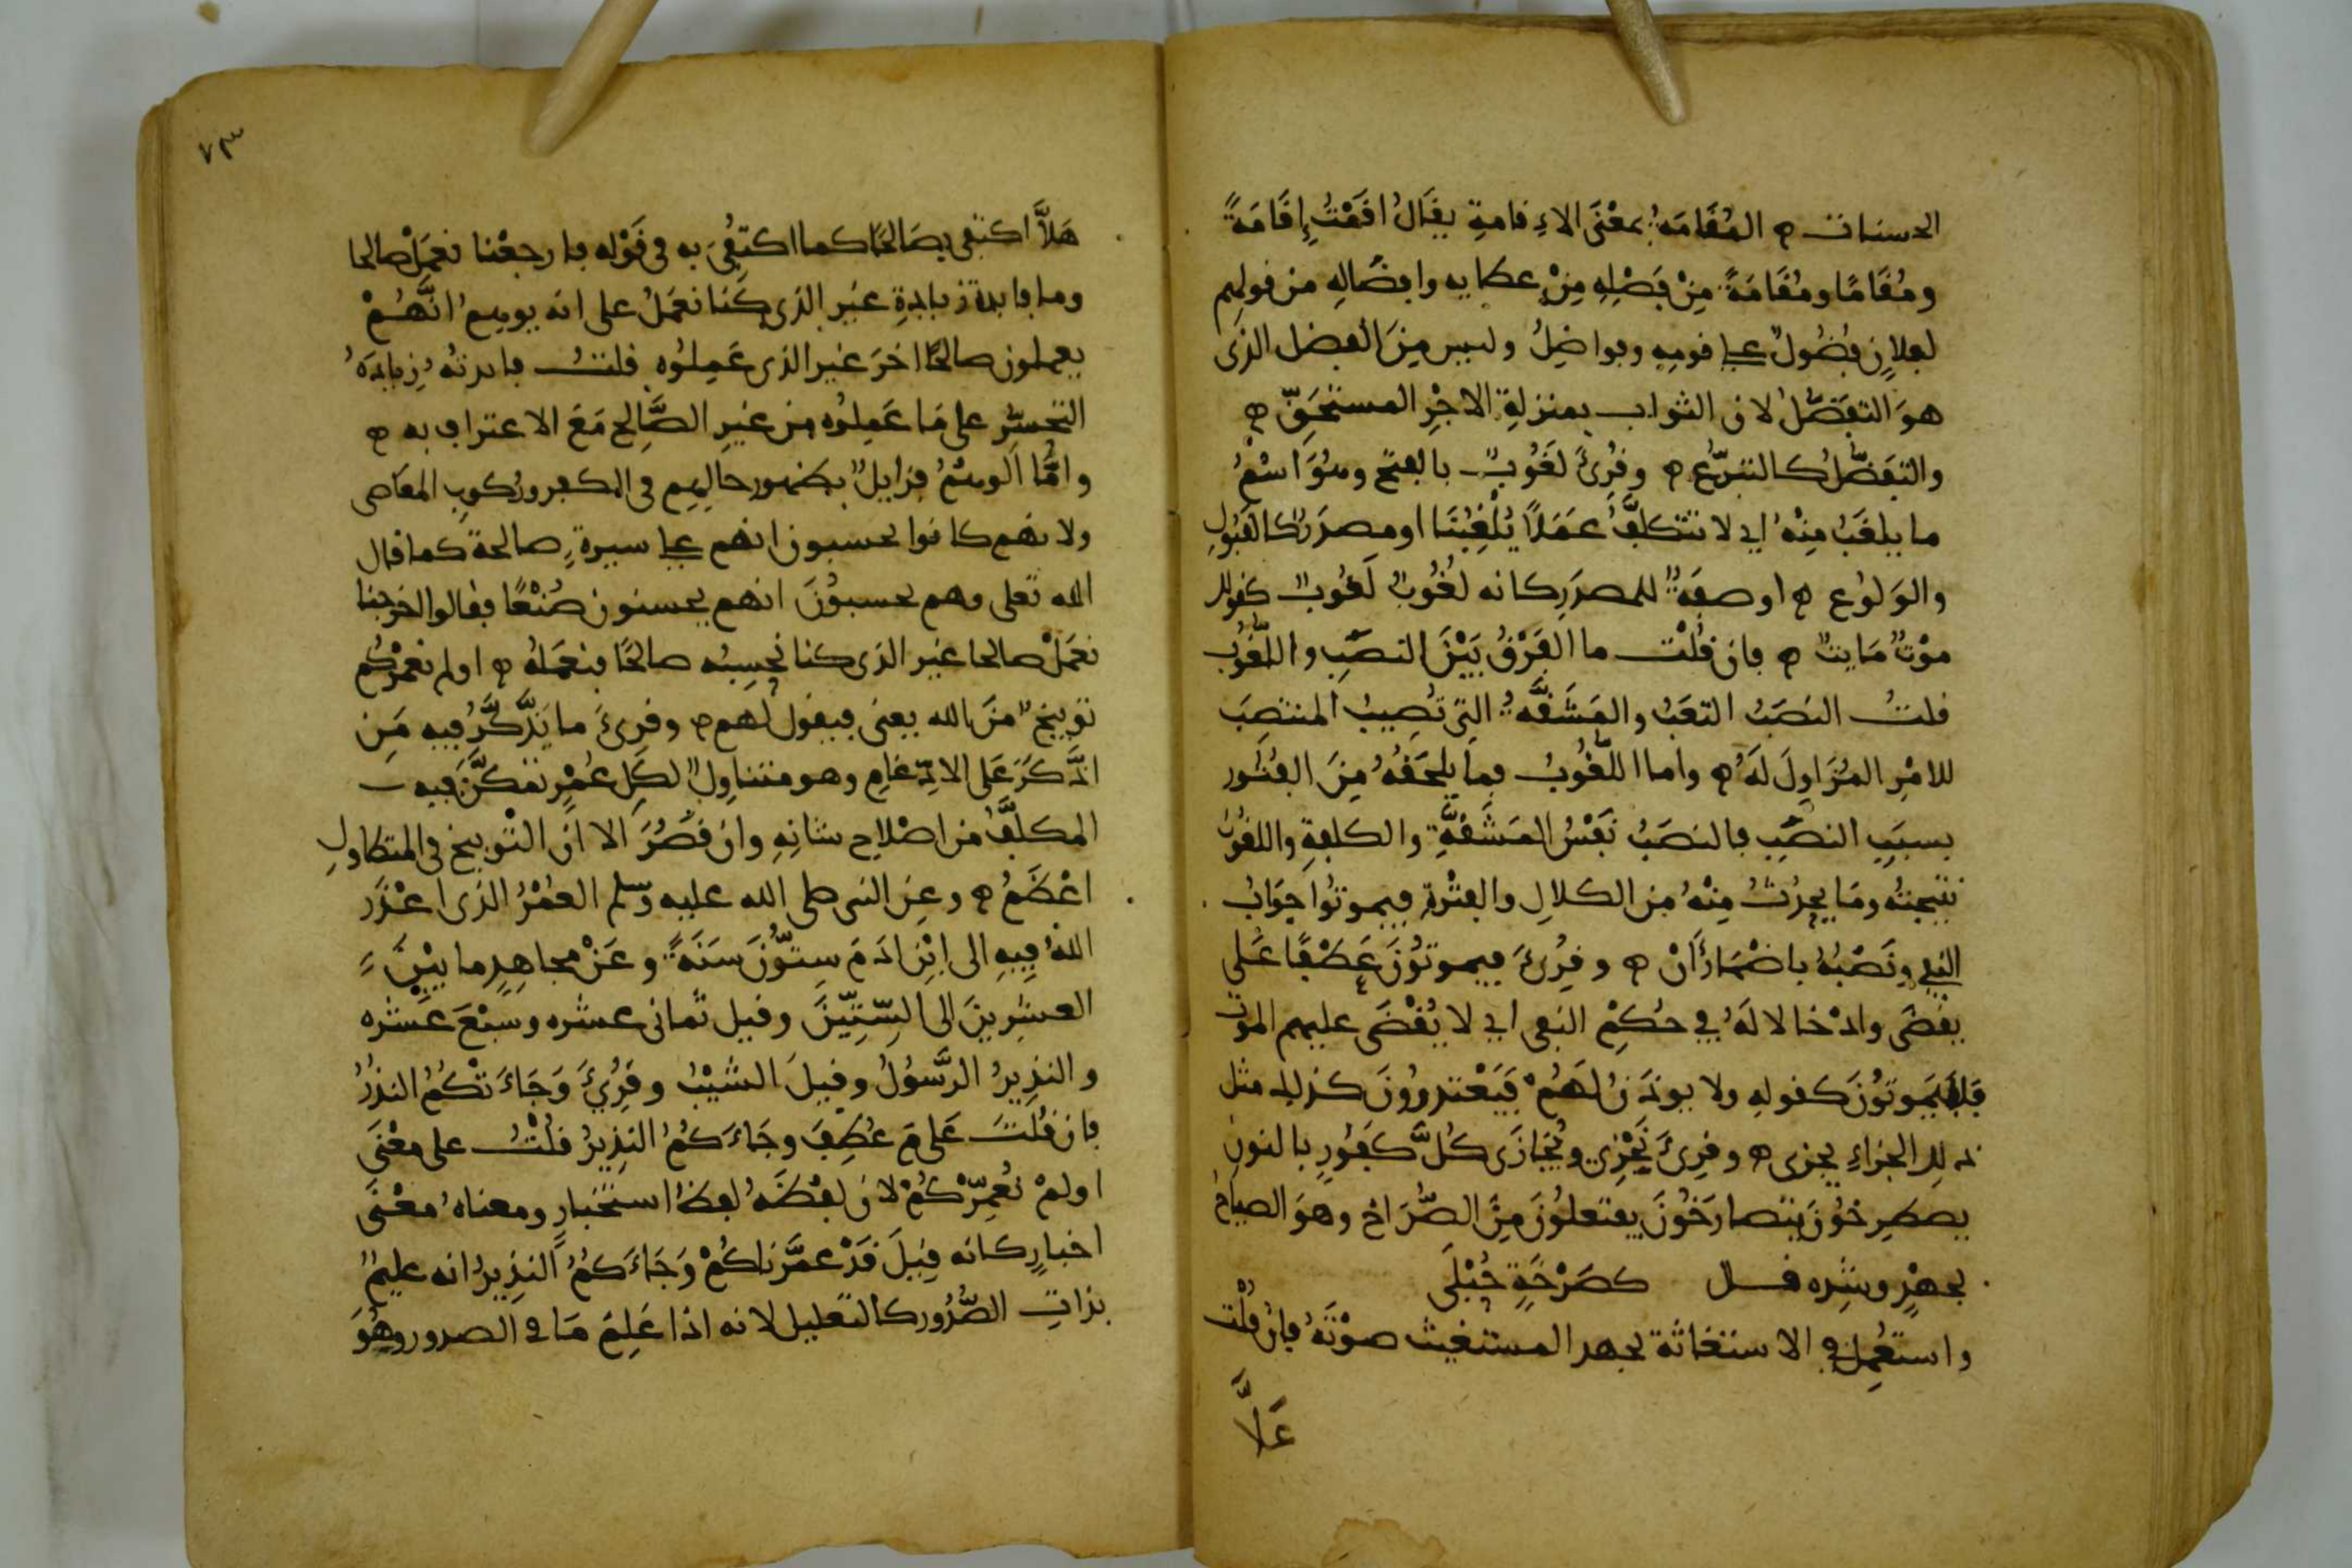 الحسنات ه المُقَامَةُ بمعْنَى الاِقامةِ يقَالُ اقَمْتُ إِقَامَةً
ومُقَامًا ومُقَامَةً مِنْ فَضْلِهِ مِنْ عطايه وافضَالِهِ من قولهم
لفلانٍ فُضُولٌ على قومِهِ وفواضِلُ وليس مِنَ الفضل الذى
هوَ التفَضّلُ لان الثواب بمنزلةِ الاجْرِ المستحَقّ ه
والتفَضّلُ كالتبرّع ه وقُرِئَ لَغُوبٌ بالفتح وهُوَ اسْمُ
ما يلغَبُ مِنْهُ اي لا نتكلّفُ عَمَلًا يُلْغِبُنَا او مصدَرٌ كالقَبُولِ
والوَلوُع ه او صفَةٌ للمصدَرِ كانه لُغُوبٌ لَغُوبٌ كقولك
موْتٌ مَايتٌ ه فان قُلْت ما الفَرْقُ بَيْنَ النصَبِ واللّغُوب
قلتُ النصَبُ التعَبُ والمَشَقَّةُ التِى تُصِيبُ المنتصِبَ
للامْرِ المُزَاوِلَ لَهُ ه واما اللّغُوبُ فما يلحَقُهُ مِنَ الفُتُور
بسبَبِ النصَبِ فالنصَبُ نَفْسُ المَشَقَّةِ والكلفةِ واللغُوبُ
نتيجتُه ومَا يحدُثُ مِنْهُ من الكلالِ والفتْرةِ فيموتُوا جوَابُ
النفي ونَصْبُهُ باضْمَارِ أَنْ ه وقُرِئَ فيموتُوُنَ عَطْفًا عَلَى
يقضَى وادْخالا لَهُ في حُكمِ النفى اي لا يُقْضَى عليهم الموت
فَلاَ يَموتوُنَ كقولهِ ولا يوذَنُ لَهُمْ فَيَعْتذروُنَ كذلك مثل
ذلِكَ الجزاءِ يجزى ه وقرِئَ نَجْزِى ويُجَازَى كُلّ كَفُورٍ بالنون
يصطرِخُوُنَ يتصارَخُونَ يفتَعلوُنَ مِنَ الصُّرَاخِ وهوَ الصياحُ
بجهْدٍ وشِده قال كصَرْخَةِ حُبْلَى
واستعُمِل في الاستغاثة لجهد المستغيث صوْتَهُ فإن قُلْت
هَلاَّ
٧٣
هَلاَّ اكتفى بصَالحًا كما اكتفُىَ به فى قَوْلِه فارجعْنا نعمَلْ صالحا
وما فايدة زيادةِ غيْر الذى كُنا نعمَلُ على انه يوهِمُ انَّهُمْ
يعملون صالحًا اخرَ غيْر الذى عَمِلُوه قلتُ فايدتُهُ زيادَةُ
التحسُّر على مَا عَمِلوُه من غيرِ الصَّالح مَعَ الاعتراف به ه
وامَّا الوهْمُ فزايلٌ بظهور حالِهِم فى الكفر وركوبِ المعَاصى
ولانهم كانوا يحسبون انهم على سيرةٍ صالحة كما قال
الله تعلى وهم يحسبوُنَ انهم يحسنون صُنْعًا فقالوا اخرجنا
نعمَلْ صالحا غير الذى كنا نحسِبُه صالحًا فنعمَلهُ ه اولم نعمّرْكُم
توبيخٌ منَ الله يعنى فيقول لهم ه وقرئَ ما يَذَّكَّرُ فيه مَن
اذَّكَرَ عَلى الادّغامِ وهو متناوِلٌ لكلِ عُمْرٍ تمكَّنَ فيه
المكلَّفُ من اصْلاح شانِهِ وان قَصُرَ الا انّ التوبيخ فى المتطاولِ
اعْظَمُ ه وعن النبى صلى الله عليه وسلم العُمْرُ الذى اعْذَرَ
اللهُ فِيهِ الى ابْنِ ادَمَ سِتّوُنَ سَنَةً وعَنْ مجاهِدٍ ما بيْنَ
العشرِينَ الى السِّتّينَ وقيل ثمانى عشره وسبْعَ عَشْره
والنذِيرُ الرَّسُولُ وقيلَ الشيْبُ وقُرِئَ وَجَاءَتْكُمُ النذُرُ
فان قُلتَ عَلى مَ عُطِفَ وجَاءَكُمُ النذِيرُ قلْتُ على معْنَى
اولمْ نُعَمِّرْكُمْ لان لفْظَهُ لفظُ استخبارٍ ومعناهُ معْنَى
اخبارٍ كانه قِيلَ قَدْ عمّرْناكُمْ وَجَاءَكُمُ النذِيرُ انه عليمٌ
بذاتِ الصُّدُور كالتعليل لانه اذا عَلِمَ مَا فى الصدور وهُوَ